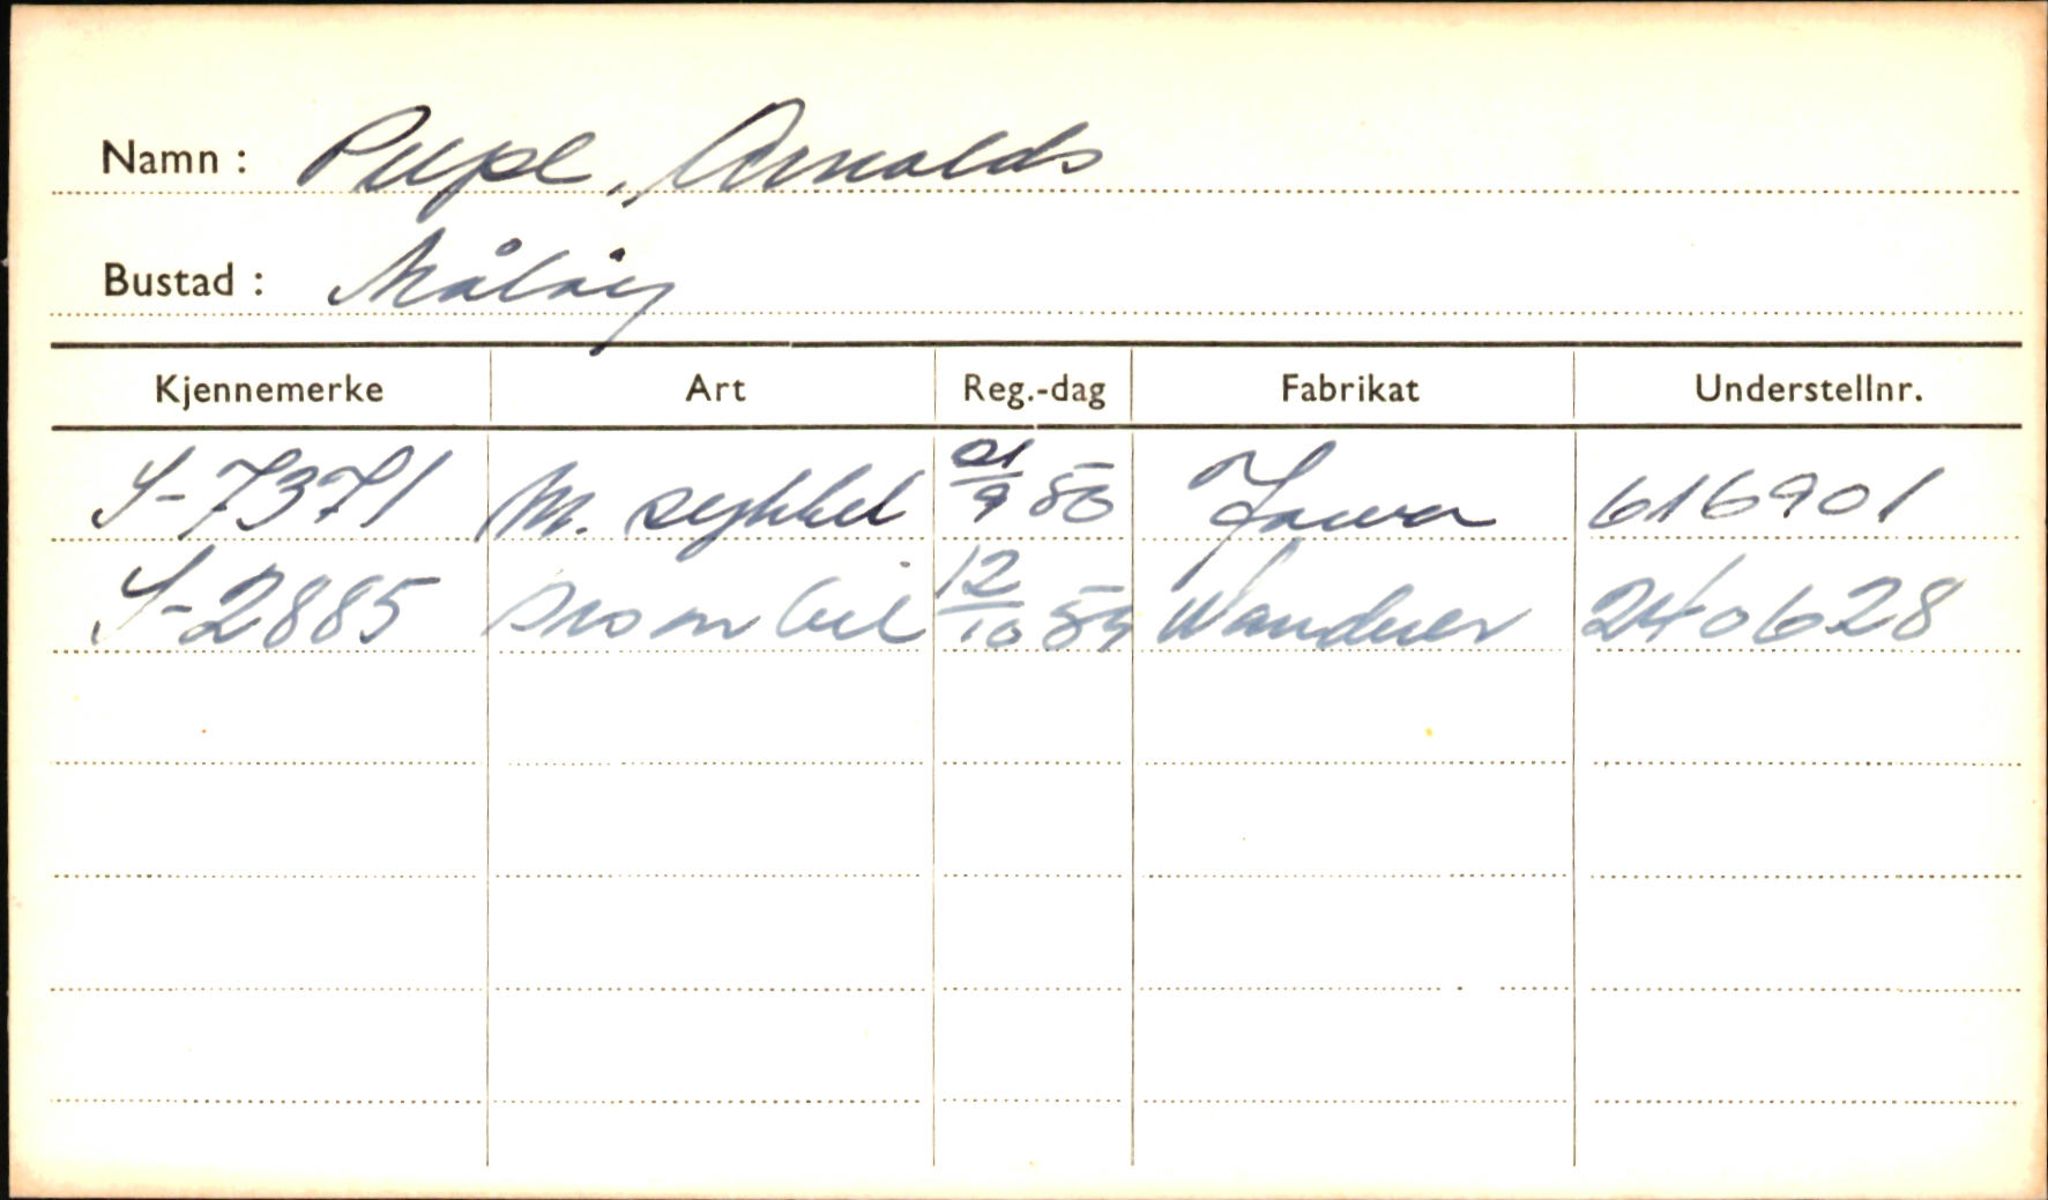 Namn : Pupe, Arnolds
Bustad : Måløy
Kjennemerke Art Reg.-dag Fabrikat Understellnr.
S-7371 M. sykkel 21/9 56 Jawa 616901
S-2885 Personbil 12/10 59 Wanderer 240628